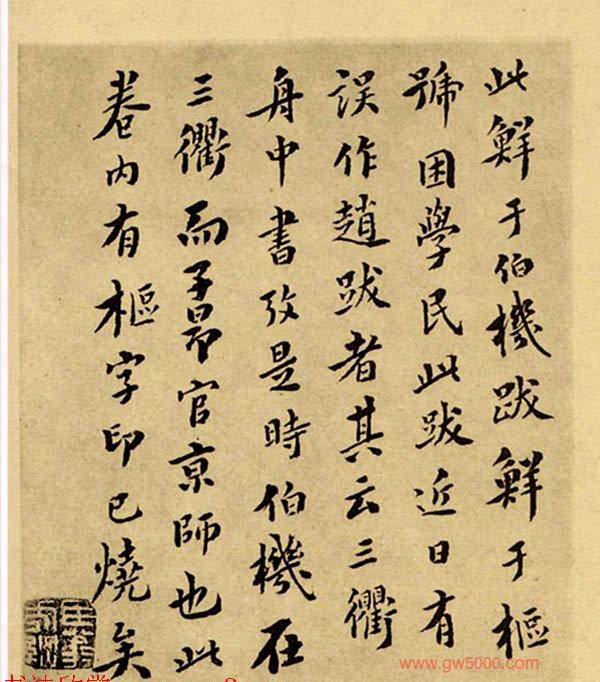 此鮮于伯機跋鮮于樞
號困學民此跋近日有
誤作趙跋者其云三衢
舟中書攷是時伯機在
三衢而子昂官京師也此
卷内有樞字印已燒矣
www.gw5000.com